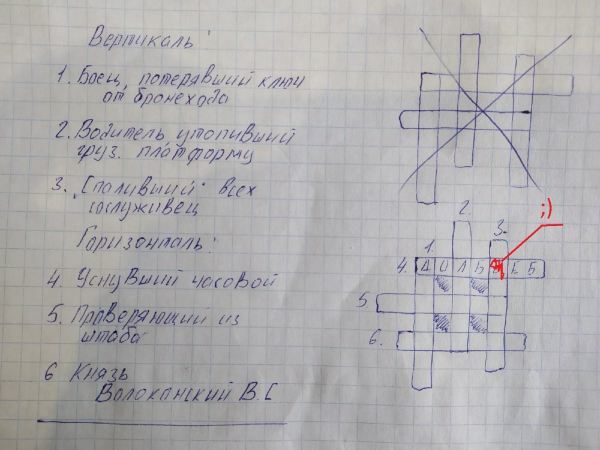 Вертикаль:
1. Боец, потерявший ключ
от бронехода
2. Водитель утопивший
груз. платформу
3. "Спаливший" всех
сослуживец
Горизонталь:
4. Уснувший часовой
5. Проверяющий из
штаба
6 Князь
Волоканский В.С
;)
2.
3.
1.
4. Д О Л Б ЕБ
5
6.